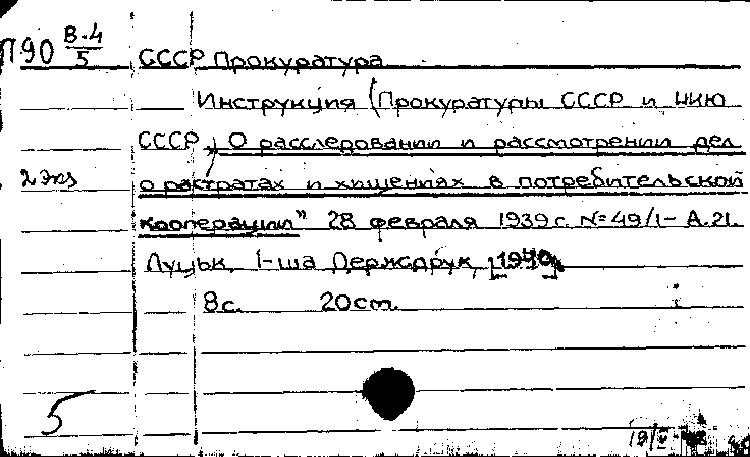 П90 В-4/5 СССР Прокуратура
Инструкция (Прокуратуры СССР и НКЮ
СССР) О расследовании и рассмотрении дел
2 экз о растратах и хищениях в потребительской
кооперации" 28 февраля 1939 г. №49/1-А.21.
Луцьк, 1-ша Держдрук, [1940].
8 с. 20 см.
5